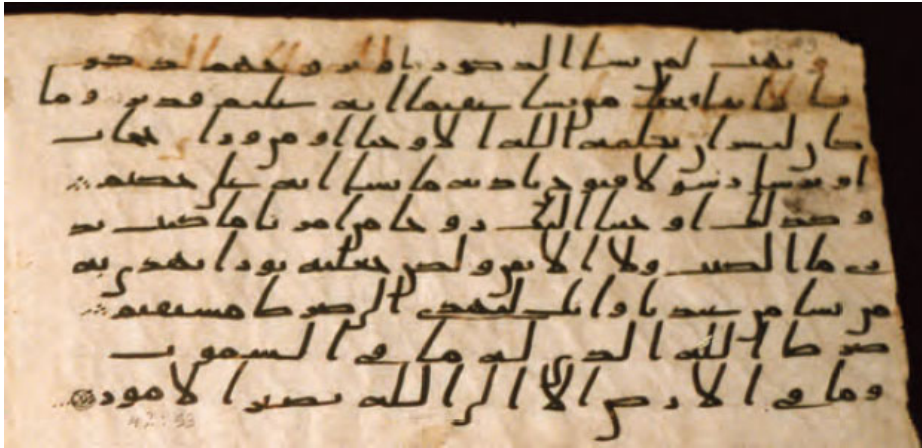 ويهب لمن يشا الذكور او يزوجهم ذكر
نا وانثا ويجعل من يشا عقيما انه عليم قدير وما
كان لبشر ان يكلمه الله الا وحيا او من وراي حجاب
او يرسل رسولا فيوحي باذنه ما يشا انه علي حكيم
وكذلك اوحينا اليك روحا من امرنا ما كنت تد
ري ما الكتب ولا الايمن ولكن جعلنه نورا نهدي به
من نشا من عبدنا وانك لتهدي الى صرط مستقيم
صرط الله الذي له ما في السموت
وما في الارض الا الى الله تصير الامور
42:53